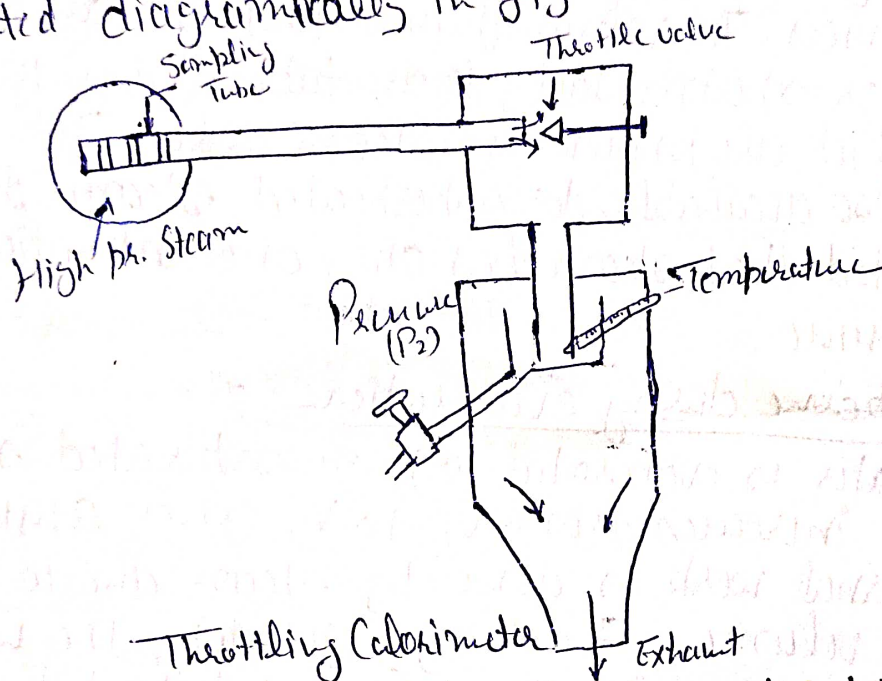 ted diagramically in fig
Sampling
Tube
Throttle valve
High pr. Steam
Pressure
(P2)
Temperature
Throttling Calorimeter
Exhaust